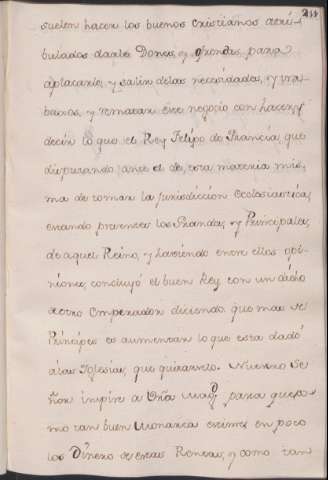 suelen hacer los buenos cristianos atri-
bulados darle Dones, y ofrendas para
aplacarle, y salir delas necesidades, y tra-
baxos, y rematar este negocio con hacer, y
decir lo que el Rey Felipo de Francia, que
disputando ante el de esta materia mis-
ma de tomar la Jurisdiccion Ecclesiastica,
estando presentes los Grandes, y Principales
de aquel Reino, y haviendo entre ellos opi-
niones, concluyó el buen Rey con un dicho
de otro Emperador diciendo que mas de
Principes es aumentar lo que esta dado
álas Iglesias, que quitarselo. Nuestro Se-
ñor inspire a Vña Magd para que co-
mo tan buen Monarca estime en poco
los Dinero de estas Rentas, y como tan